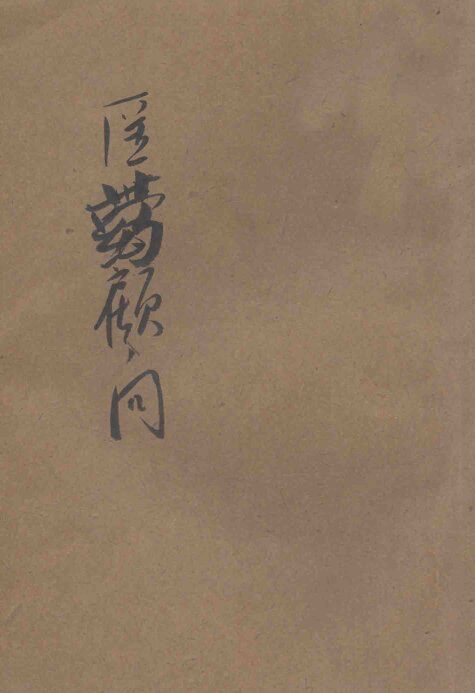 医药顾问